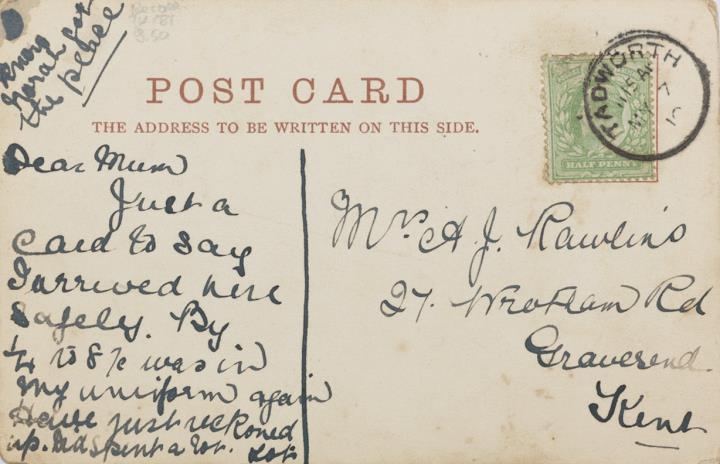 POST CARD
THE ADDRESS TO BE WRITTEN ON THIS SIDE.
HALF PENNY
TADWORTH
7
10
Dear Mum
Just a
Card to say
I arrived here
Safely. By
¼ to 8 
was in
my uniform again
Have just reckoned
up. 
spent a lot.
Mrs A. J. Rawlins
27. Wrotham Rd
Gravesend.
Kent
the place